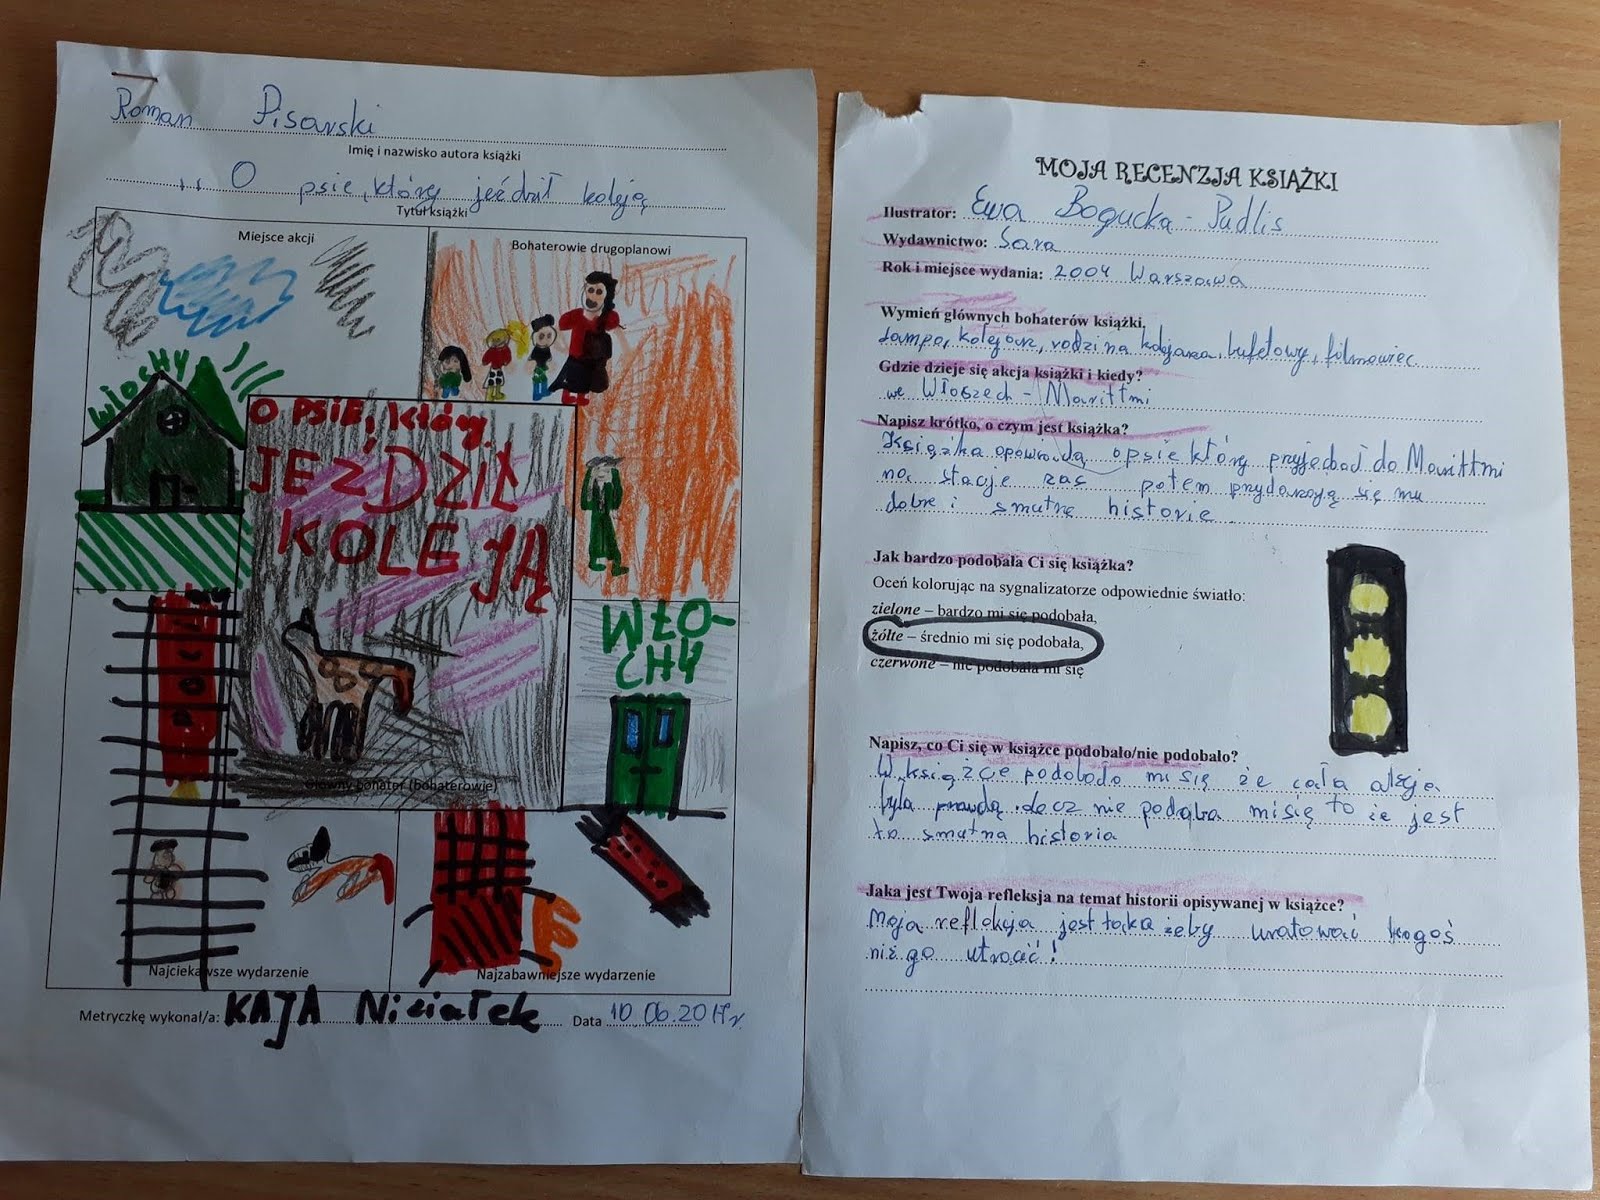 Roman Pisarski
Imię i nazwisko autora książki
,, O psie, który jeździł koleją
Tytuł książki
Miejsce akcji
Bohaterowie drugoplanowi
WŁOCHY
O PSIE, który
JEŹDZIŁ
KOLEJĄ
WŁO-
CHY
Główny bohater (bohaterowie)
Najciekawsze wydarzenie
Najzabawniejsze wydarzenie
Metryczkę wykonał/a: KAJA Niciałek Data 10.06.2017r.
MOJA RECENZJA KSIĄŻKI
Ilustrator: Ewa Bogucka-Pudlis
Wydawnictwo: Sara
Rok i miejsce wydania: 2004 Warszawa
Wymień głównych bohaterów książki.
Lampo, kolejarz, rodzina kolejarza, bufetowy, filmowiec.
Gdzie dzieje się akcja książki i kiedy?
we Włoszech - Marittmi
Napisz krótko, o czym jest książka?
Książka opowiada o psie który przyjechał do Marittmi
na stację zaś potem przydarzają się mu
dobre i smutne historie.
Jak bardzo podobała Ci się książka?
Oceń kolorując na sygnalizatorze odpowiednie światło:
zielone – bardzo mi się podobała,
żółte – średnio mi się podobała,
czerwone – nie podobała mi się
Napisz, co Ci się w książce podobało/nie podobało?
W książce podobało mi się że cała akcja
była prawdą lecz nie podoba mi się to że jest
to smutna historia
Jaka jest Twoja refleksja na temat historii opisywanej w książce?
Moja reflekcja jest taka żeby uratować kogoś
niż go utracić!